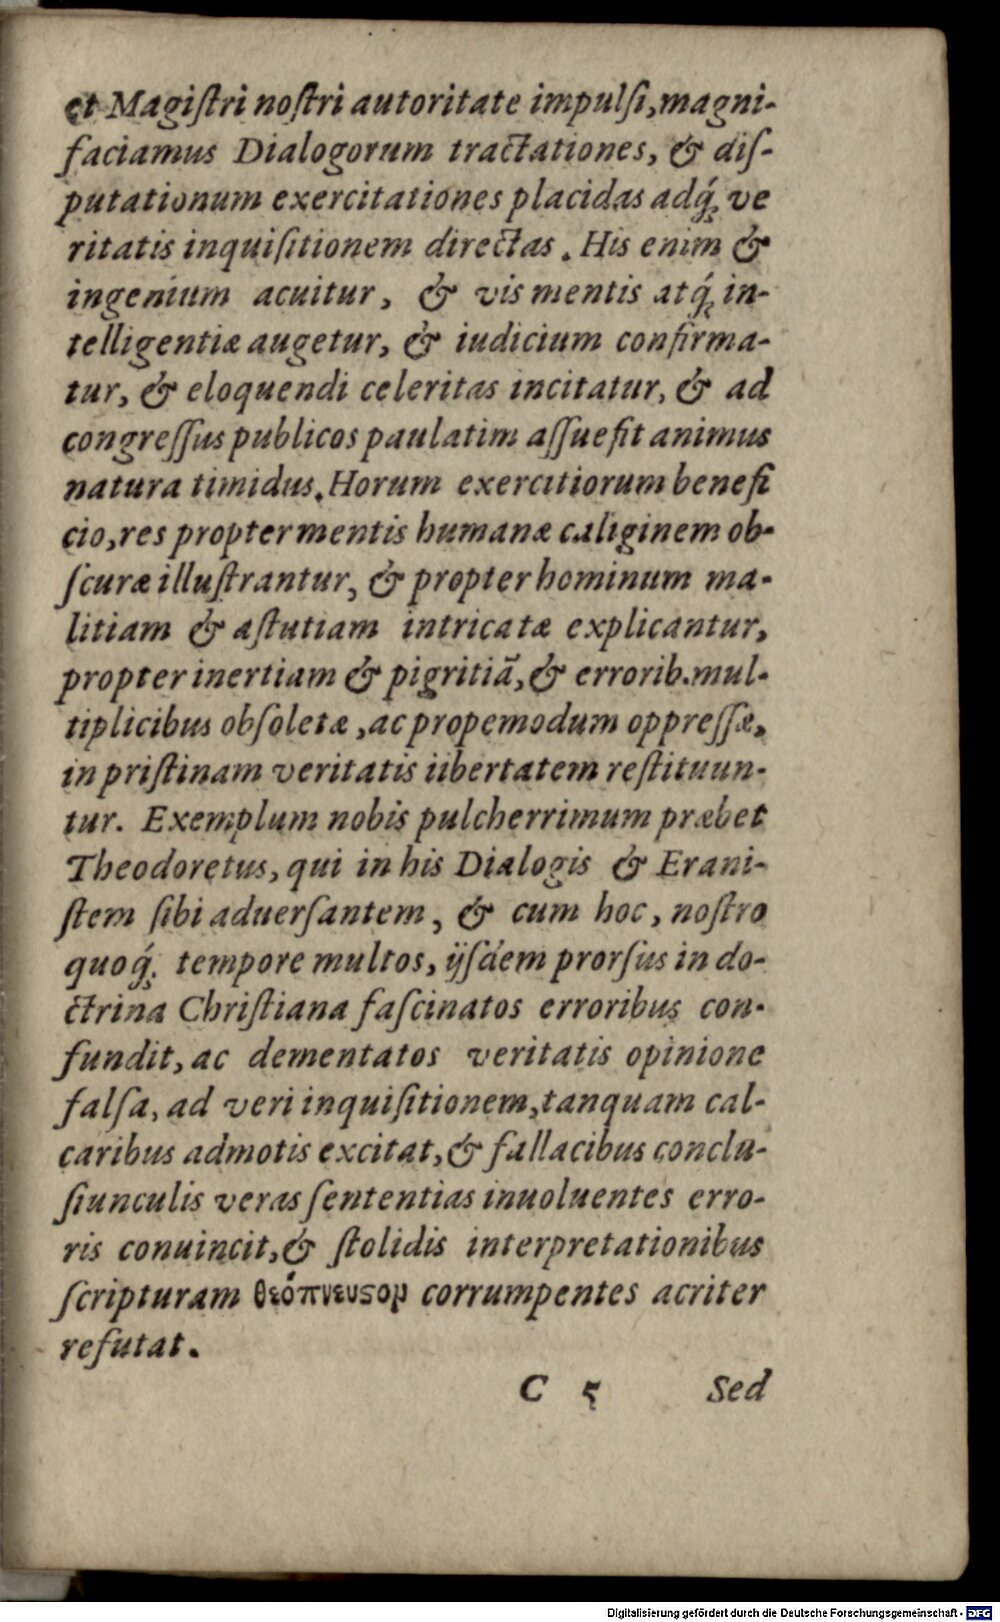 et Magiſtri noſtri autoritate impulſi, magni-
faciamus Dialogorum tractationes, & diſ-
putationum exercitationes placidas adq́; ve
ritatis inquiſitionem directas. His enim &
ingenium acuitur, & vis mentis atq́; in-
telligentiæ augetur, & iudicium confirma-
tur, & eloquendi celeritas incitatur, & ad
congreſſus publicos paulatim aſſuefit animus
natura timidus. Horum exercitiorum benefi
cio, res propter mentis humanæ caliginem ob-
ſcuræ illuſtrantur, & propter hominum ma-
litiam & aſtutiam intricatæ explicantur,
propter inertiam & pigritiã, & errorib. mul-
tiplicibus obſoletæ, ac propemodum oppreſſæ,
in priſtinam veritatis iibertatem reſtituun-
tur. Exemplum nobis pulcherrimum præbet
Theodoretus, qui in his Dialogis & Erani-
ſtem ſibi aduerſantem, & cum hoc, noſtro
quoq́;. tempore multos, ijſdem prorſus in do-
ctrina Chriſtiana faſcinatos erroribus con-
fundit, ac dementatos veritatis opinione
falſa, ad veri inquiſitionem, tanquam cal-
caribus admotis excitat, & fallacibus conclu-
ſiunculis veras ſententias inuoluentes erro-
ris conuincit, & ſtolidis interpretationibus
ſcripturam θεόπνευϛον corrumpentes acriter
refutat.
C 5 Sed
Digitalisierung gefördert durch die Deutsche Forschungsgemeinschaft - DFG